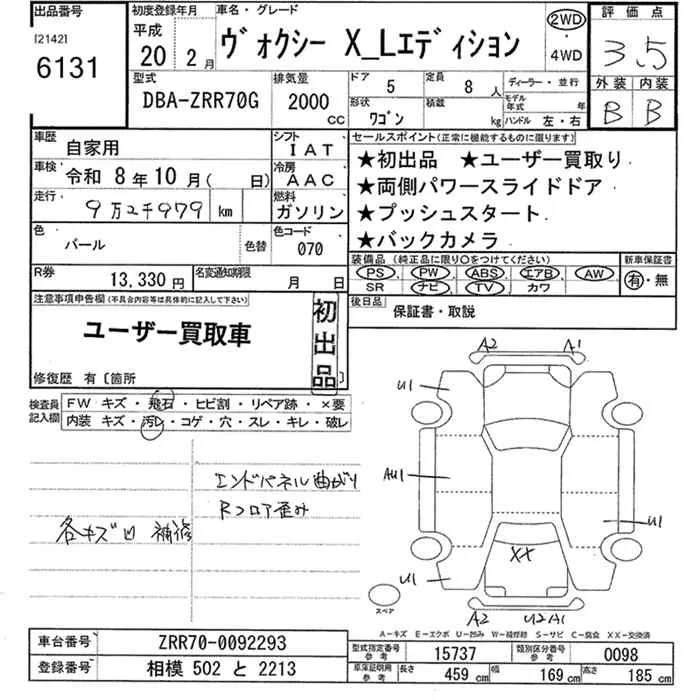 出品番号 初度登録年月 車名・グレード 2WD 評価点
[2142] 平成 ヴォクシー X_Lエディション 3.5
6131 20 2月 4WD
型式 排気量 ドア 5 定員 8人 ディーラー・並行 外装 内装
DBA-ZRR70G 2000 CC 形状 ワゴン 積載 kg モデル年式 年 ハンドル 左・右 B B
車歴 自家用 シフト IAT セールスポイント(正常に機能するものに限ります)
車検 令和 8年10月( 日) 冷房 AAC ★初出品 ★ユーザー買取り
走行 9万2千979 km 燃料 ガソリン ★両側パワースライドドア
★プッシュスタート
色 パール 色替 色コード 070 ★バックカメラ
装備品(純正品に限り○をつけてください) 新車保証書
R券 13,330円 名変通知期限 月 日 PS PW ABS エアB AW 有・無
SR ナビ TV カワ
注意事項申告欄(不具合内容等は具体的に記入して下さい) 後日品 保証書・取説
ユーザー買取車 初出品
修復歴 有〔箇所 〕
検査員記入欄 FW キズ・飛石・ヒビ割・リペア跡・×要
内装 キズ・汚レ・コゲ・穴・スレ・キレ・破レ
エンドパネル曲がり
Rフロア歪み
各キズ凹 補修
A2 A1
U1
AU1
U1
XX
U1
スペア
A2 U2A1
A-キズ E-エクボ U-凹み W-補修跡 S-サビ C-腐食 XX-交換済
車台番号 ZRR70-0092293 型式指定番号 参考 15737 類別区分番号 参考 0098
登録番号 相模 502 と 2213 車庫証明用 参考 長さ 459 cm 幅 169 cm 高さ 185 cm